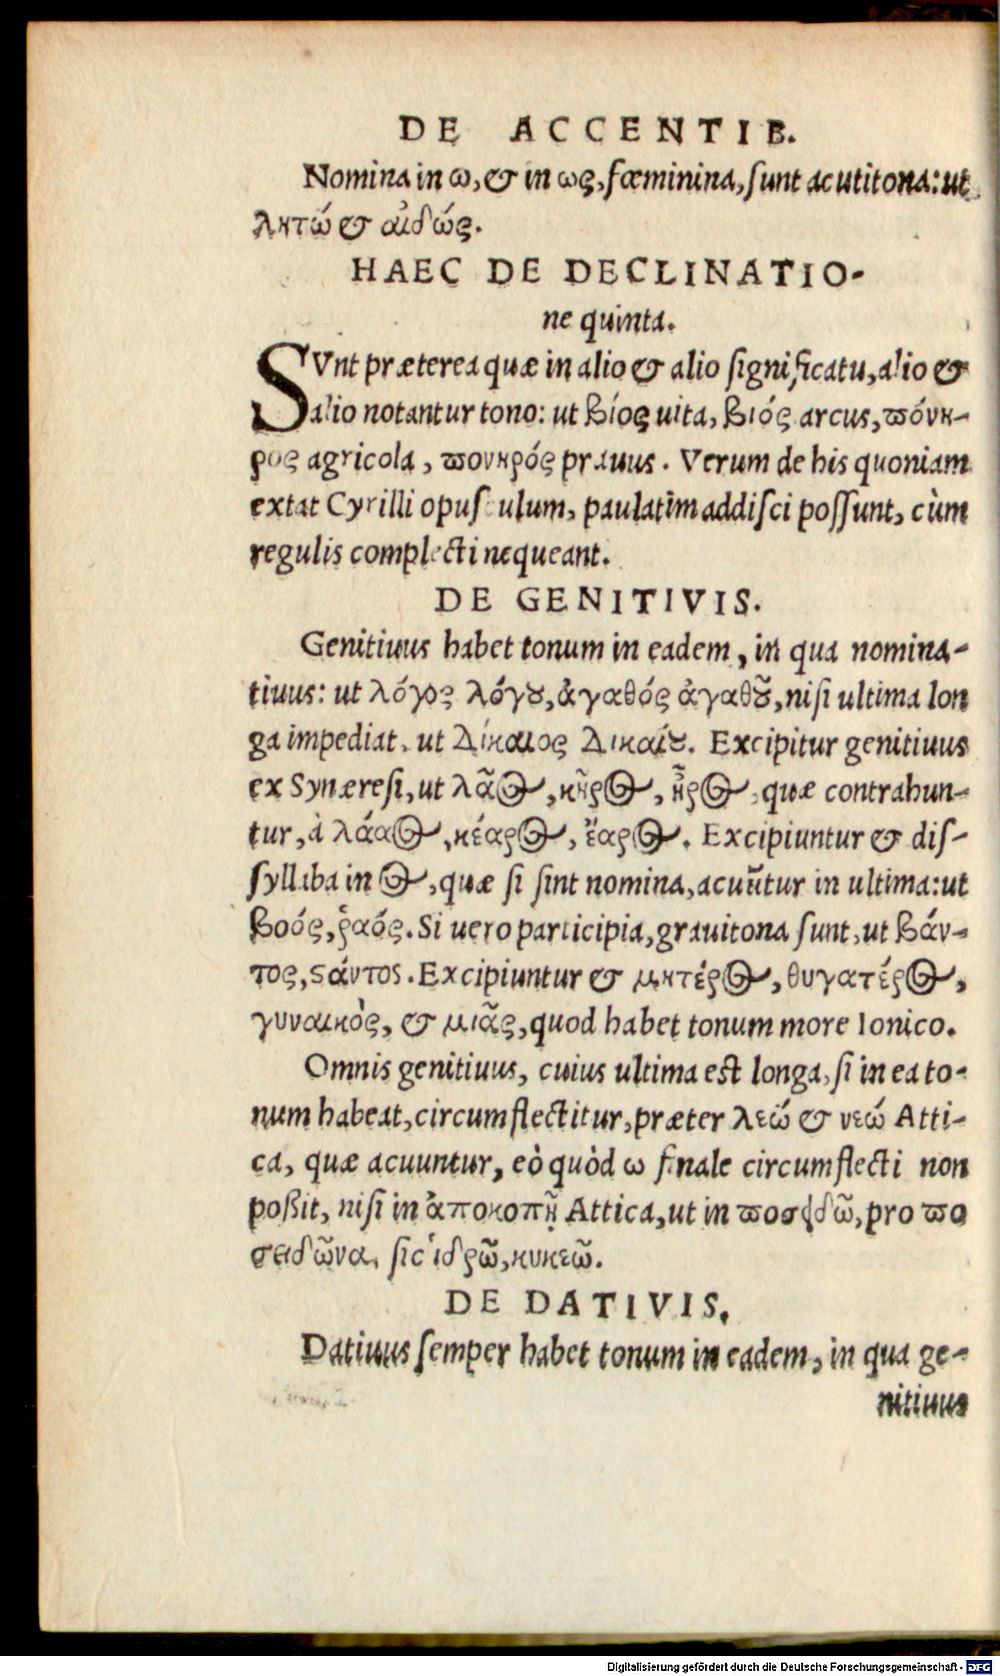 DE ACCENTIB.
Nomina in ω, & in ως, fœminina, ſunt acutitona: ut
λητώ & αἰδώς.
HAEC DE DECLINATIO-
ne quinta.
SVnt præterea quæ in alio & alio ſignificatu, alio &
alio notantur tono: ut βίος uita, βιός arcus, πόνη-
ρος agricola, πονηρός prauus. Verum de his quoniam
extat Cyrilli opuſculum, paulatim addiſci poſſunt, cùm
regulis complecti nequeant.
DE GENITIVIS.
Genitiuus habet tonum in eadem, in qua nomina-
tiuus: ut λόγος λόγȣ, ἀγαθός ἀγαθȣ͂, niſi ultima lon
ga impediat, ut Δίκαιος Δικαίȣ. Excipitur genitiuus
ex Synæreſi, ut λᾶος, κῆρος, ἦρος, quæ contrahun-
tur, à λάαος, κέαρος, ἔαρος. Excipiuntur & diſ-
ſyllaba in ος, quæ ſi ſint nomina, acuũtur in ultima: ut
βοός, ῥαός. Si uero participia, grauitona ſunt, ut βάν-
τος, ϛάντος. Excipiuntur & μητέρος, θυγατέρος,
γυναικὸς, & μιᾶς, quod habet tonum more Ionico.
Omnis genitiuus, cuius ultima eſt longa, ſi in ea to-
num habeat, circumflectitur, præter λεώ & νεώ Atti-
ca, quæ acuuntur, eò quòd ω finale circumflecti non
poßit, niſi in ἀποκοπῇ Attica, ut in ποσειδῶ, pro πο
σειδῶνα, ſic ἱδρῶ, κυκεῶ.
DE DATIVIS.
Datiuus ſemper habet tonum in eadem, in qua ge-
nitiuus
Digitalisierung gefördert durch die Deutsche Forschungsgemeinschaft - DFG